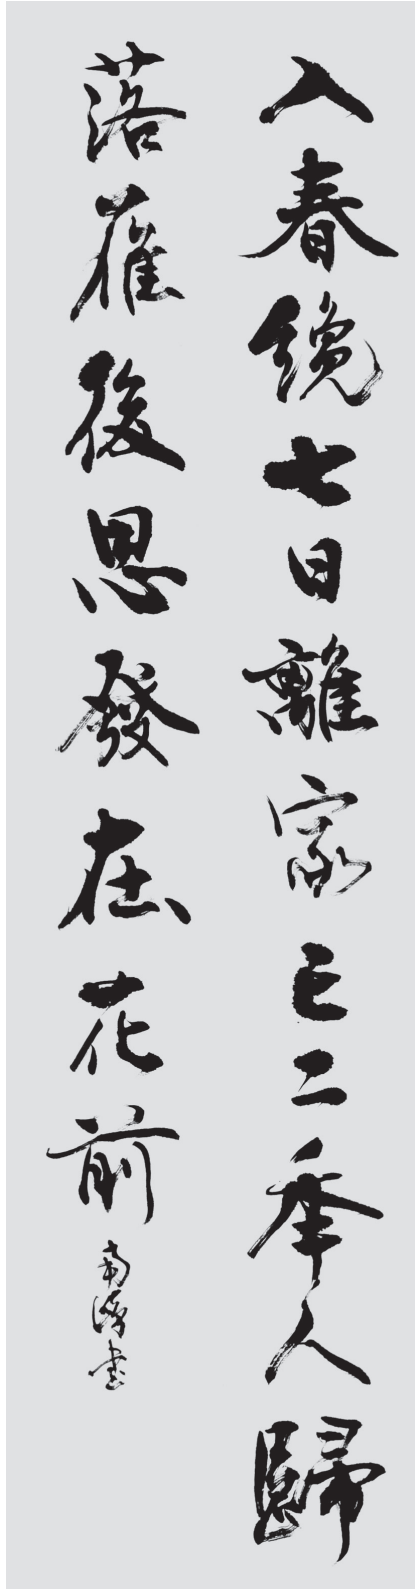 入春纔七日離家已二年人歸
落雁後思發在花前
南 书